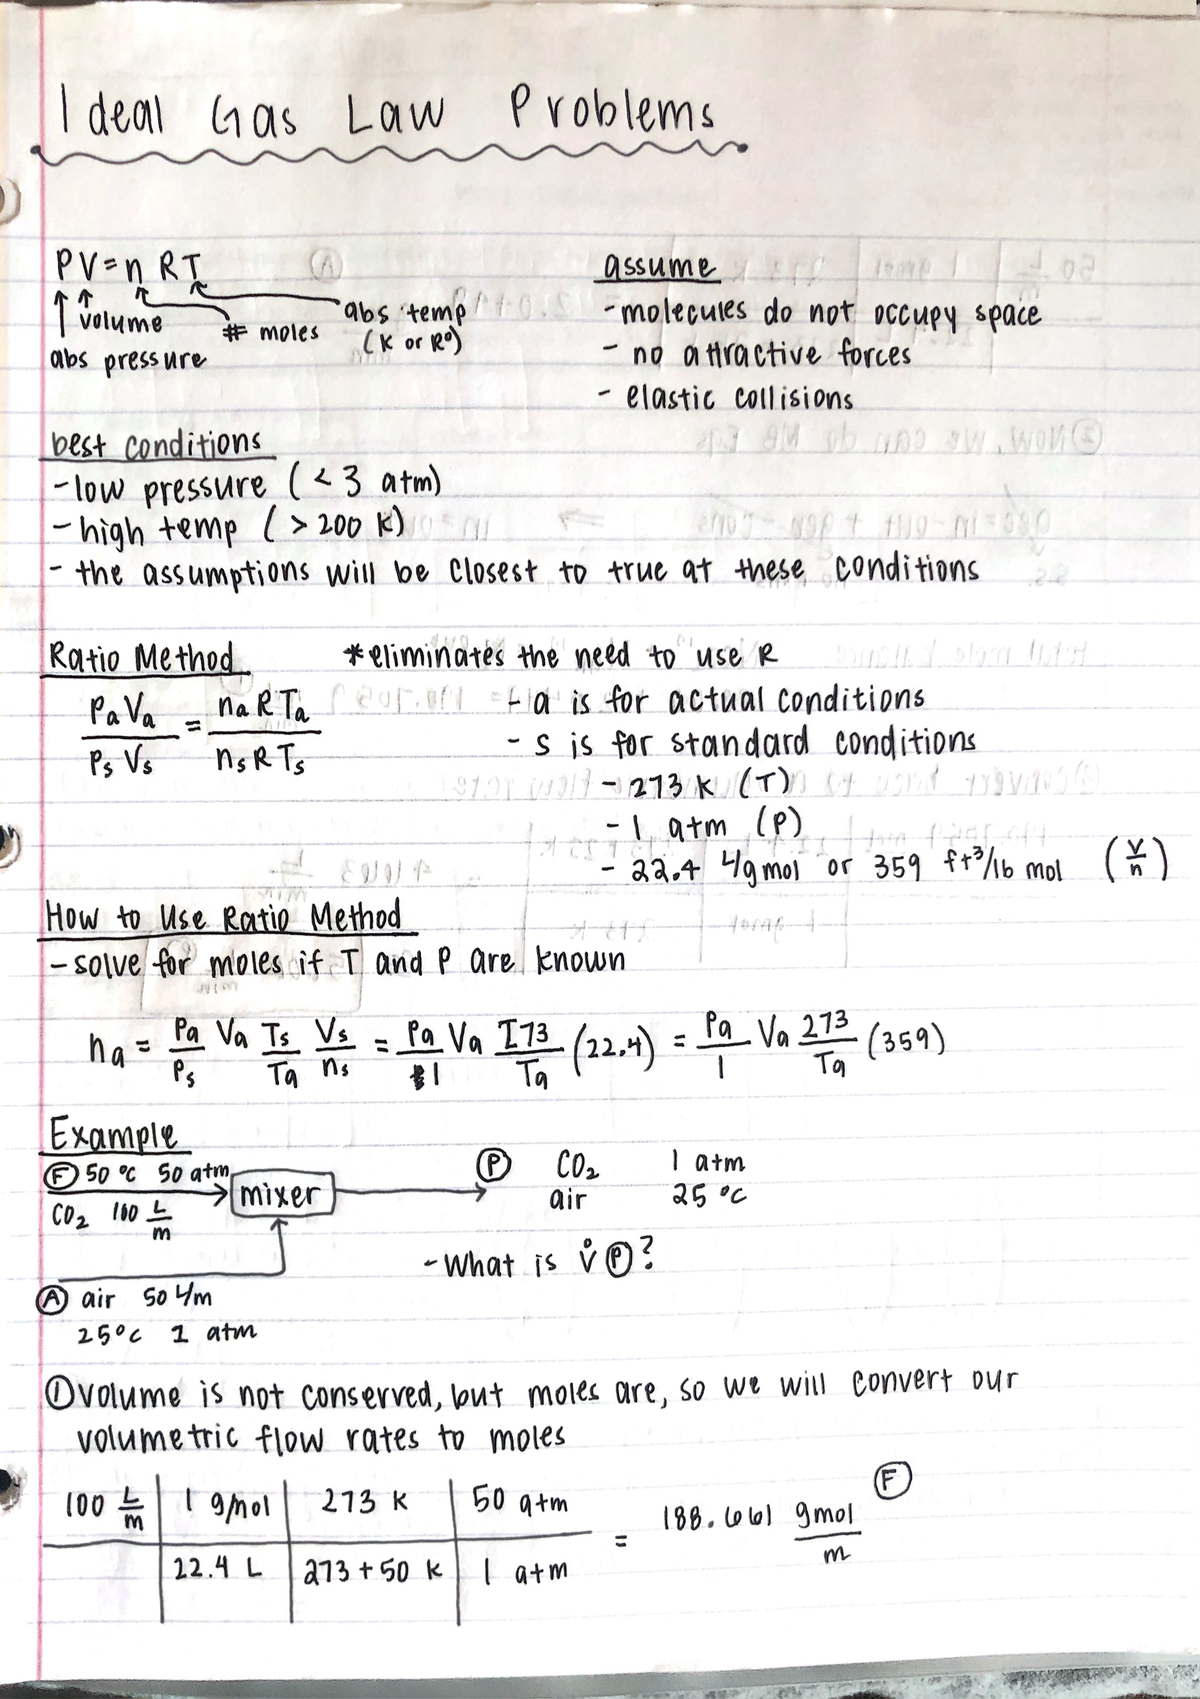 Ideal Gas Law Problems
PV = n RT
volume
# moles
abs temp
(K or R°)
abs pressure
assume
- molecules do not occupy space
- no attractive forces
- elastic collisions
best conditions
- low pressure (< 3 atm)
- high temp (> 200 K)
- the assumptions will be closest to true at these conditions
Ratio Method *eliminates the need to use R
PaVa / PsVs = naRTa / nsRTs
- a is for actual conditions
- s is for standard conditions
- 273 K (T)
- 1 atm (P)
- 22.4 L/gmol or 359 ft³/lb mol (V/n)
How to Use Ratio Method
- solve for moles if T and P are known
na = Pa/Ps Va Ts/Ta Vs/ns = Pa/1 Va 273/Ta (22.4) = Pa/1 Va 273/Ta (359)
Example
Ⓕ 50 °C 50 atm
CO₂ 100 L/m
mixer
Ⓟ CO₂ 1 atm
air 25 °C
- What is V̊ Ⓟ?
Ⓐ air 50 L/m
25°C 1 atm
① volume is not conserved, but moles are, so we will convert our
volumetric flow rates to moles
100 L/m | 1 gmol | 273 K | 50 atm
22.4 L | 273 + 50 K | 1 atm
= 188.661 gmol/m Ⓕ